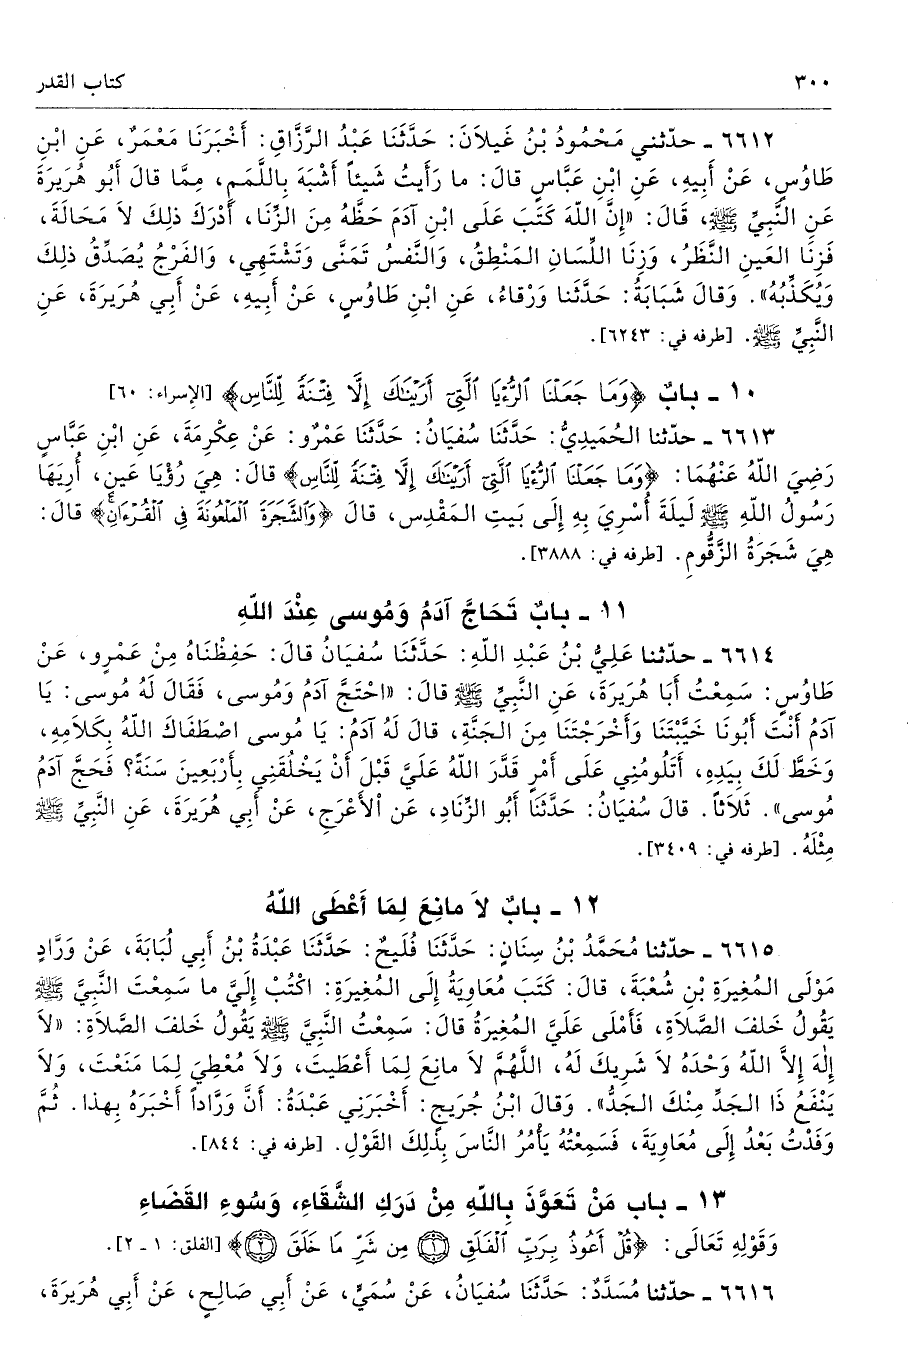 ٣٠٠ كتاب القدر
٦٦١٢ ـ حدّثني مَحْمُودُ بْنُ غَيلاَنَ: حَدَّثَنَا عَبْدُ الرَّزَّاقِ: أَخْبَرَنَا مَعْمَرٌ، عَنِ ابْنِ
طَاوُسٍ، عَنْ أَبِيهِ، عَنِ ابْنِ عَبَّاسٍ قالَ: ما رَأَيتُ شَيئاً أَشْبَهَ بِاللَّمَمِ، مِمَّا قالَ أَبُو هُرَيرَةَ
عَنِ النَّبِيِّ ﷺ، قَالَ: «إِنَّ اللّهَ كَتَبَ عَلَى ابْنِ آدَمَ حَظَّهُ مِنَ الزِّنَا، أَدْرَكَ ذلِكَ لاَ مَحَالَةَ،
فَزِنَا العَينِ النَّظَرُ، وَزِنَا اللِّسَانِ المَنْطِقُ، وَالنَّفسُ تَمَنَّى وَتَشْتَهِي، وَالفَرْجُ يُصَدِّقُ ذلِكَ
وَيُكَذِّبُهُ». وَقالَ شَبَابَةُ: حَدَّثَنا وَرْقاءُ، عَنِ ابْنِ طَاوُسٍ، عَنْ أَبِيهِ، عَنْ أَبِي هُرَيرَةَ، عَنِ
النَّبِيِّ ﷺ. [طرفه في: ٦٢٤٣].
١٠ ـ بابٌ ﴿وَمَا جَعَلْنَا ٱلرُّءْيَا ٱلَّتِىٓ أَرَيْنَٰكَ إِلَّا فِتْنَةً لِّلنَّاسِ﴾ [الإسراء: ٦٠]
٦٦١٣ ـ حدّثنا الحُمَيدِيُّ: حَدَّثَنَا سُفيَانُ: حَدَّثَنَا عَمْرٌو: عَنْ عِكْرِمَةَ، عَنِ ابْنِ عَبَّاسٍ
رَضِيَ اللّهُ عَنْهُمَا: ﴿وَمَا جَعَلْنَا ٱلرُّءْيَا ٱلَّتِىٓ أَرَيْنَٰكَ إِلَّا فِتْنَةً لِّلنَّاسِ﴾ قالَ: هِيَ رُؤْيَا عَينٍ، أُرِيَهَا
رَسُولُ اللّهِ ﷺ لَيلَةَ أُسْرِيَ بِهِ إِلَى بَيتِ المَقْدِسِ، قالَ ﴿وَٱلشَّجَرَةَ ٱلْمَلْعُونَةَ فِى ٱلْقُرْءَانِۚ﴾ قالَ:
هِيَ شَجَرَةُ الزَّقُّومِ. [طرفه في: ٣٨٨٨].
١١ ـ بابٌ تَحَاجَّ آدَمُ وَمُوسى عِنْدَ اللّهِ
٦٦١٤ ـ حدّثنا عَلِيُّ بْنُ عَبْدِ اللّهِ: حَدَّثَنَا سُفيَانُ قالَ: حَفِظْنَاهُ مِنْ عَمْرٍو، عَنْ
طَاوُسٍ: سَمِعْتُ أَبَا هُرَيرَةَ، عَنِ النَّبِيِّ ﷺ قالَ: «احْتَجَّ آدَمُ وَمُوسى، فَقَالَ لَهُ مُوسى: يَا
آدَمُ أَنْتَ أَبُونَا خَيَّبْتَنَا وَأَخْرَجْتَنَا مِنَ الجَنَّةِ، قالَ لَهُ آدَمُ: يَا مُوسى اصْطَفَاكَ اللّهُ بِكَلاَمِهِ،
وَخَطَّ لَكَ بِيَدِهِ، أَتَلُومُنِي عَلَى أَمْرٍ قَدَّرَ اللّهُ عَلَيَّ قَبْلَ أَنْ يَخْلُقَنِي بِأَرْبَعِينَ سَنَةً؟ فَحَجَّ آدَمُ
مُوسى». ثَلاَثاً. قالَ سُفيَانُ: حَدَّثَنَا أَبُو الزِّنَادِ، عَنِ الأَعْرَجِ، عَنْ أَبِي هُرَيرَةَ، عَنِ النَّبِيِّ ﷺ
مِثْلَهُ. [طرفه في: ٣٤٠٩].
١٢ ـ بابٌ لاَ مانِعَ لِمَا أَعْطَى اللّهُ
٦٦١٥ ـ حدّثنا مُحَمَّدُ بْنُ سِنَانٍ: حَدَّثَنَا فُلَيحٌ: حَدَّثَنَا عَبْدَةُ بْنُ أَبِي لُبَابَةَ، عَنْ وَرَّادٍ
مَوْلَى المُغِيرَةِ بْنِ شُعْبَةَ، قالَ: كَتَبَ مُعَاوِيَةُ إِلَى المُغِيرَةِ: اكْتُبْ إِلَيَّ ما سَمِعْتَ النَّبِيَّ ﷺ
يَقُولُ خَلفَ الصَّلاَةِ، فَأَمْلَى عَلَيَّ المُغِيرَةُ قالَ: سَمِعْتُ النَّبِيَّ ﷺ يَقُولُ خَلفَ الصَّلاَةِ: «لاَ
إِلٰهَ إِلاَّ اللّهُ وَحْدَهُ لاَ شَرِيكَ لَهُ، اللَّهُمَّ لاَ مانِعَ لِمَا أَعْطَيتَ، وَلاَ مُعْطِيَ لِمَا مَنَعْتَ، وَلاَ
يَنْفَعُ ذَا الجَدِّ مِنْكَ الجَدُّ». وَقالَ ابْنُ جُرَيجٍ: أَخْبَرَنِي عَبْدَةُ: أَنَّ وَرَّاداً أَخْبَرَهُ بِهذا. ثُمَّ
وَفَدْتُ بَعْدُ إِلَى مُعَاوِيَةَ، فَسَمِعْتُهُ يَأْمُرُ النَّاسَ بِذَلِكَ القَوْلِ. [طرفه في: ٨٤٤].
١٣ ـ باب مَنْ تَعَوَّذَ بِاللّهِ مِنْ دَرَكِ الشَّقَاءِ، وَسُوءِ القَضَاءِ
وَقَوْلِهِ تَعَالَى: ﴿قُلْ أَعُوذُ بِرَبِّ ٱلْفَلَقِ ۝١ مِن شَرِّ مَا خَلَقَ ۝٢﴾ [الفلق: ١ ـ ٢].
٦٦١٦ ـ حدّثنا مُسَدَّدٌ: حَدَّثَنَا سُفيَانُ، عَنْ سُمَيٍّ، عَنْ أَبِي صَالِحٍ، عَنْ أَبِي هُرَيرَةَ،